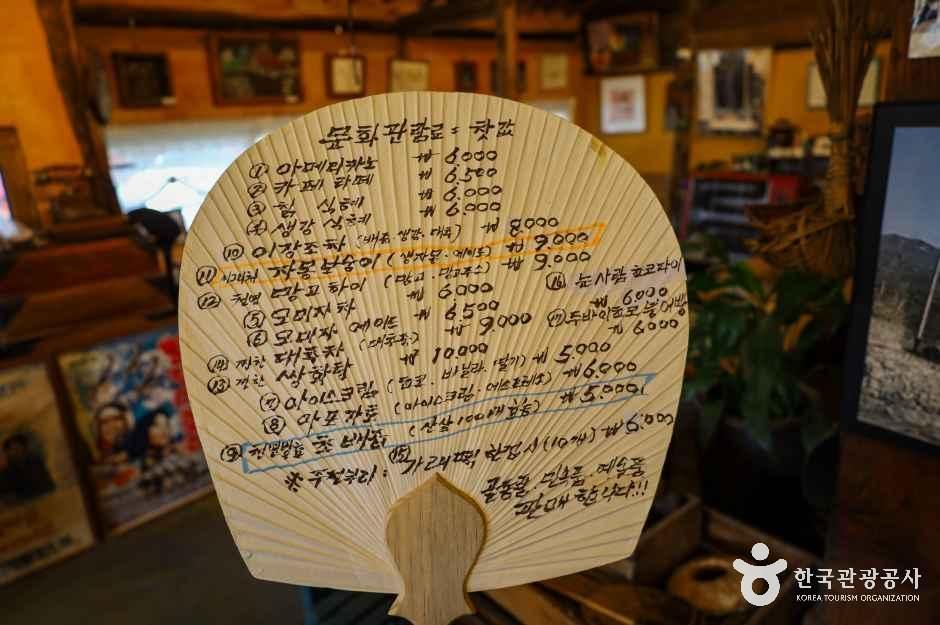 문화관람료 = 찻값
① 아메리카노 ₩ 6.000
② 카페라떼 ₩ 6.500
③ 침 식혜 ₩ 6.000
④ 생강 식혜 ₩ 6.000
⑩ 이강조차 (배·생강·대추) ₩ 8.000
⑪ 자몽보숭이 (생자몽·에이드) ₩ 9.000
⑫ 천연 망고하이 (망고·망고쥬스) ₩ 9.000
⑤ 오미자차 ₩ 6.000
⑥ 오미자 에이드 ₩ 6.500
⑭ 찐한 대추차 (대추고) ₩ 9.000
⑬ 찐한 쌍화탕 ₩ 10.000
⑦ 아이스크림 (초코·바닐라·딸기) ₩ 5.000
⑧ 아포가토 (아이스크림·에스프레소) ₩ 6.000
⑨ 천연발효 초 (산삼 100배 효능) ₩ 5.000
⑮ 가래떡 한접시 (10개) ₩ 6.000
⑯ 눈사람 초코파이 ₩ 6.000
⑰ 두바이초코붕어빵 ₩ 6.000
※ 주전부리 :
골동품 민속품 예술품
판매합니다!!!
한국관광공사
KOREA TOURISM ORGANIZATION